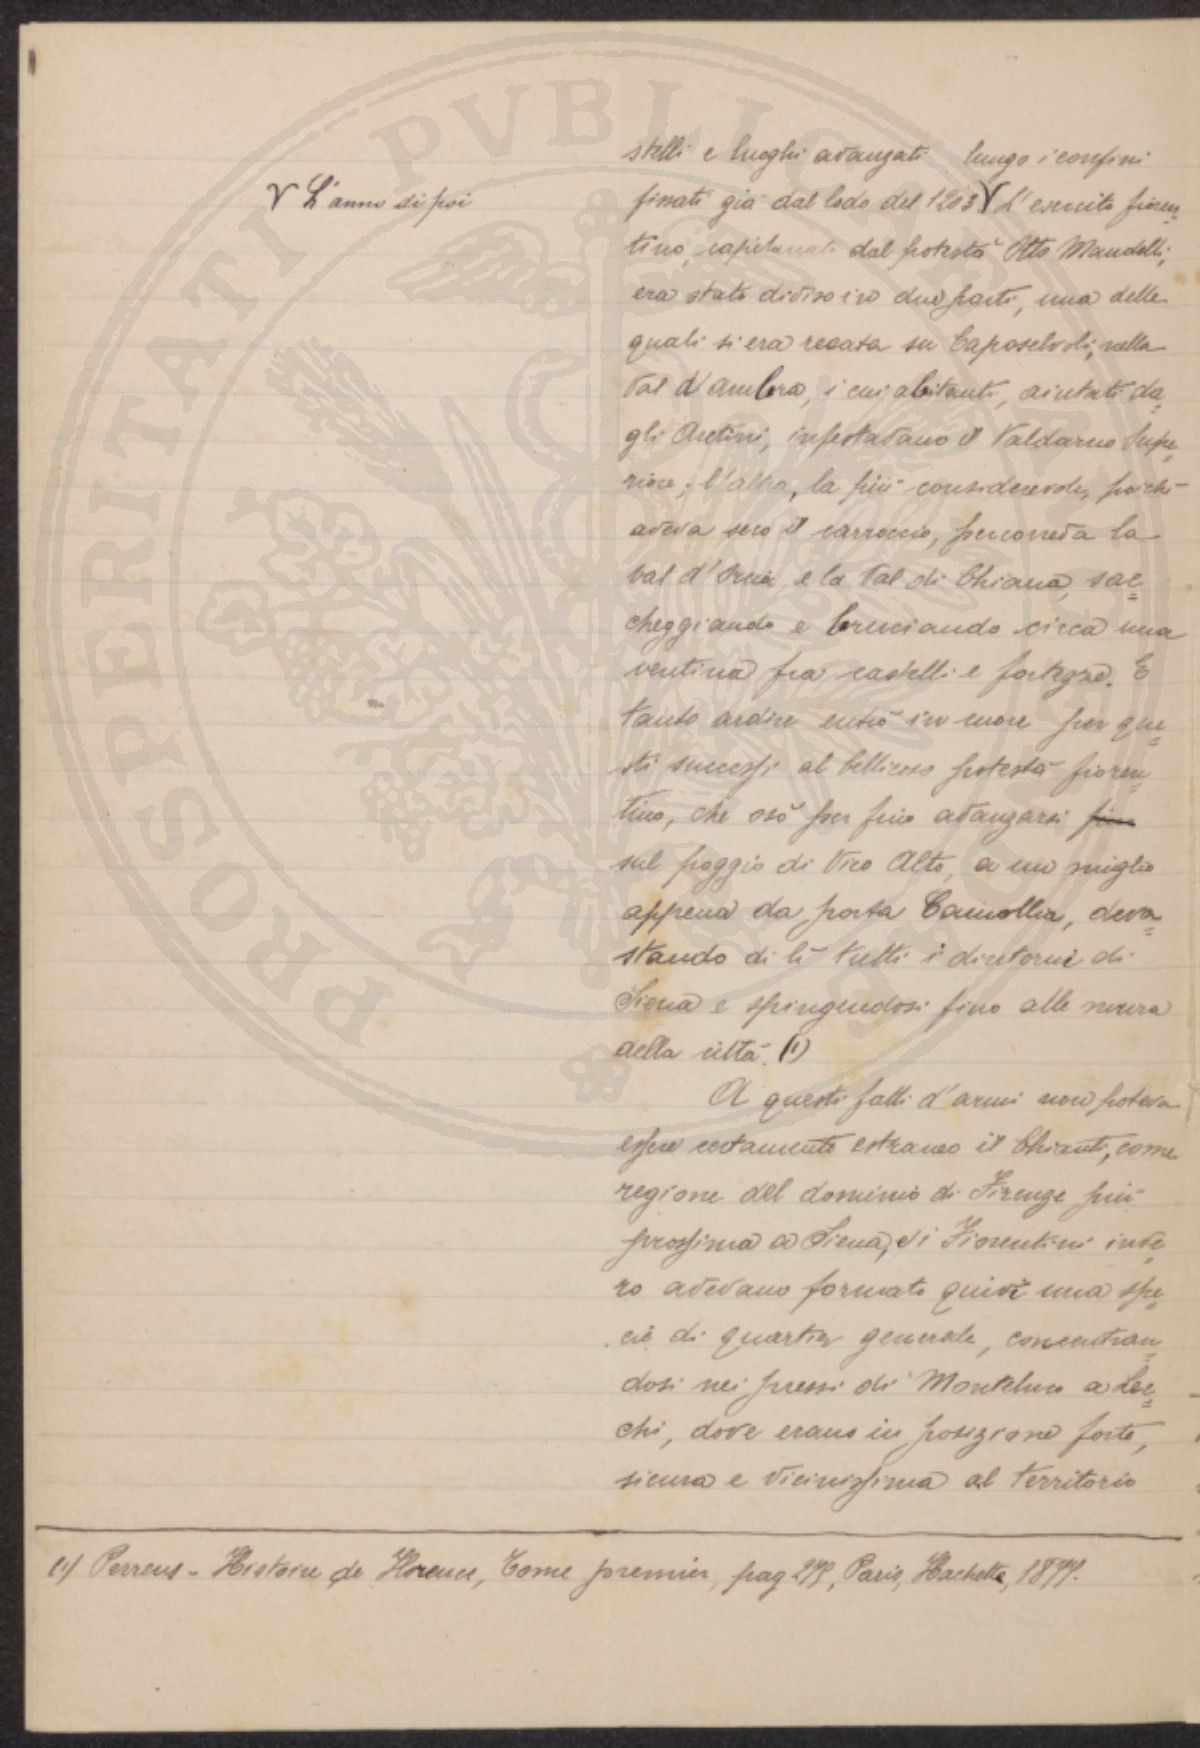 stelli e luoghi avanzati lungo i confini
V L'anno di poi
fissati già dal lodo del 1203 V L'esercito fioren=
tino, capitanato dal potestà Otto Mandelli,
era stato diviso in due parti, una delle
quali si era recata su Caposelvoli, nella
Val d'ambra, i cui abitanti, aiutati da=
gli Aretini, infestavano il Valdarno Supe=
riore; l'altra, la più considerevole, perchè
aveva seco il carroccio, percorreva la
Val d'Orcia e la Val di Chiana, sac=
cheggiando e bruciando circa una
ventina fra castelli e fortezze. E
tanto ardire entrò in cuore per que=
sti successi al bellicoso potestà fioren=
tino, che osò per fino avanzarsi fino
sul poggio di Vico Alto, a un miglio
appena da porta Camollia, deva=
stando di lì tutti i dintorni di
Siena e spingendosi fino alle mura
della città. (1)
A questi fatti d'armi non poteva
essere certamente estraneo il Chianti, come
regione del dominio di Firenze più
prossima a Siena, ed i Fiorentini inve=
ro avevano formato quivi una spe=
cie di quartier generale, concentran=
dosi nei pressi di Monteluco a Lec=
chi, dove erano in posizione forte,
sicura e vicinissima al territorio
(1) Perrens - Histoire de Florence, Tome premier, pag , Paris, Hachette, 1877.
PROSPERITATI PVBLICAE